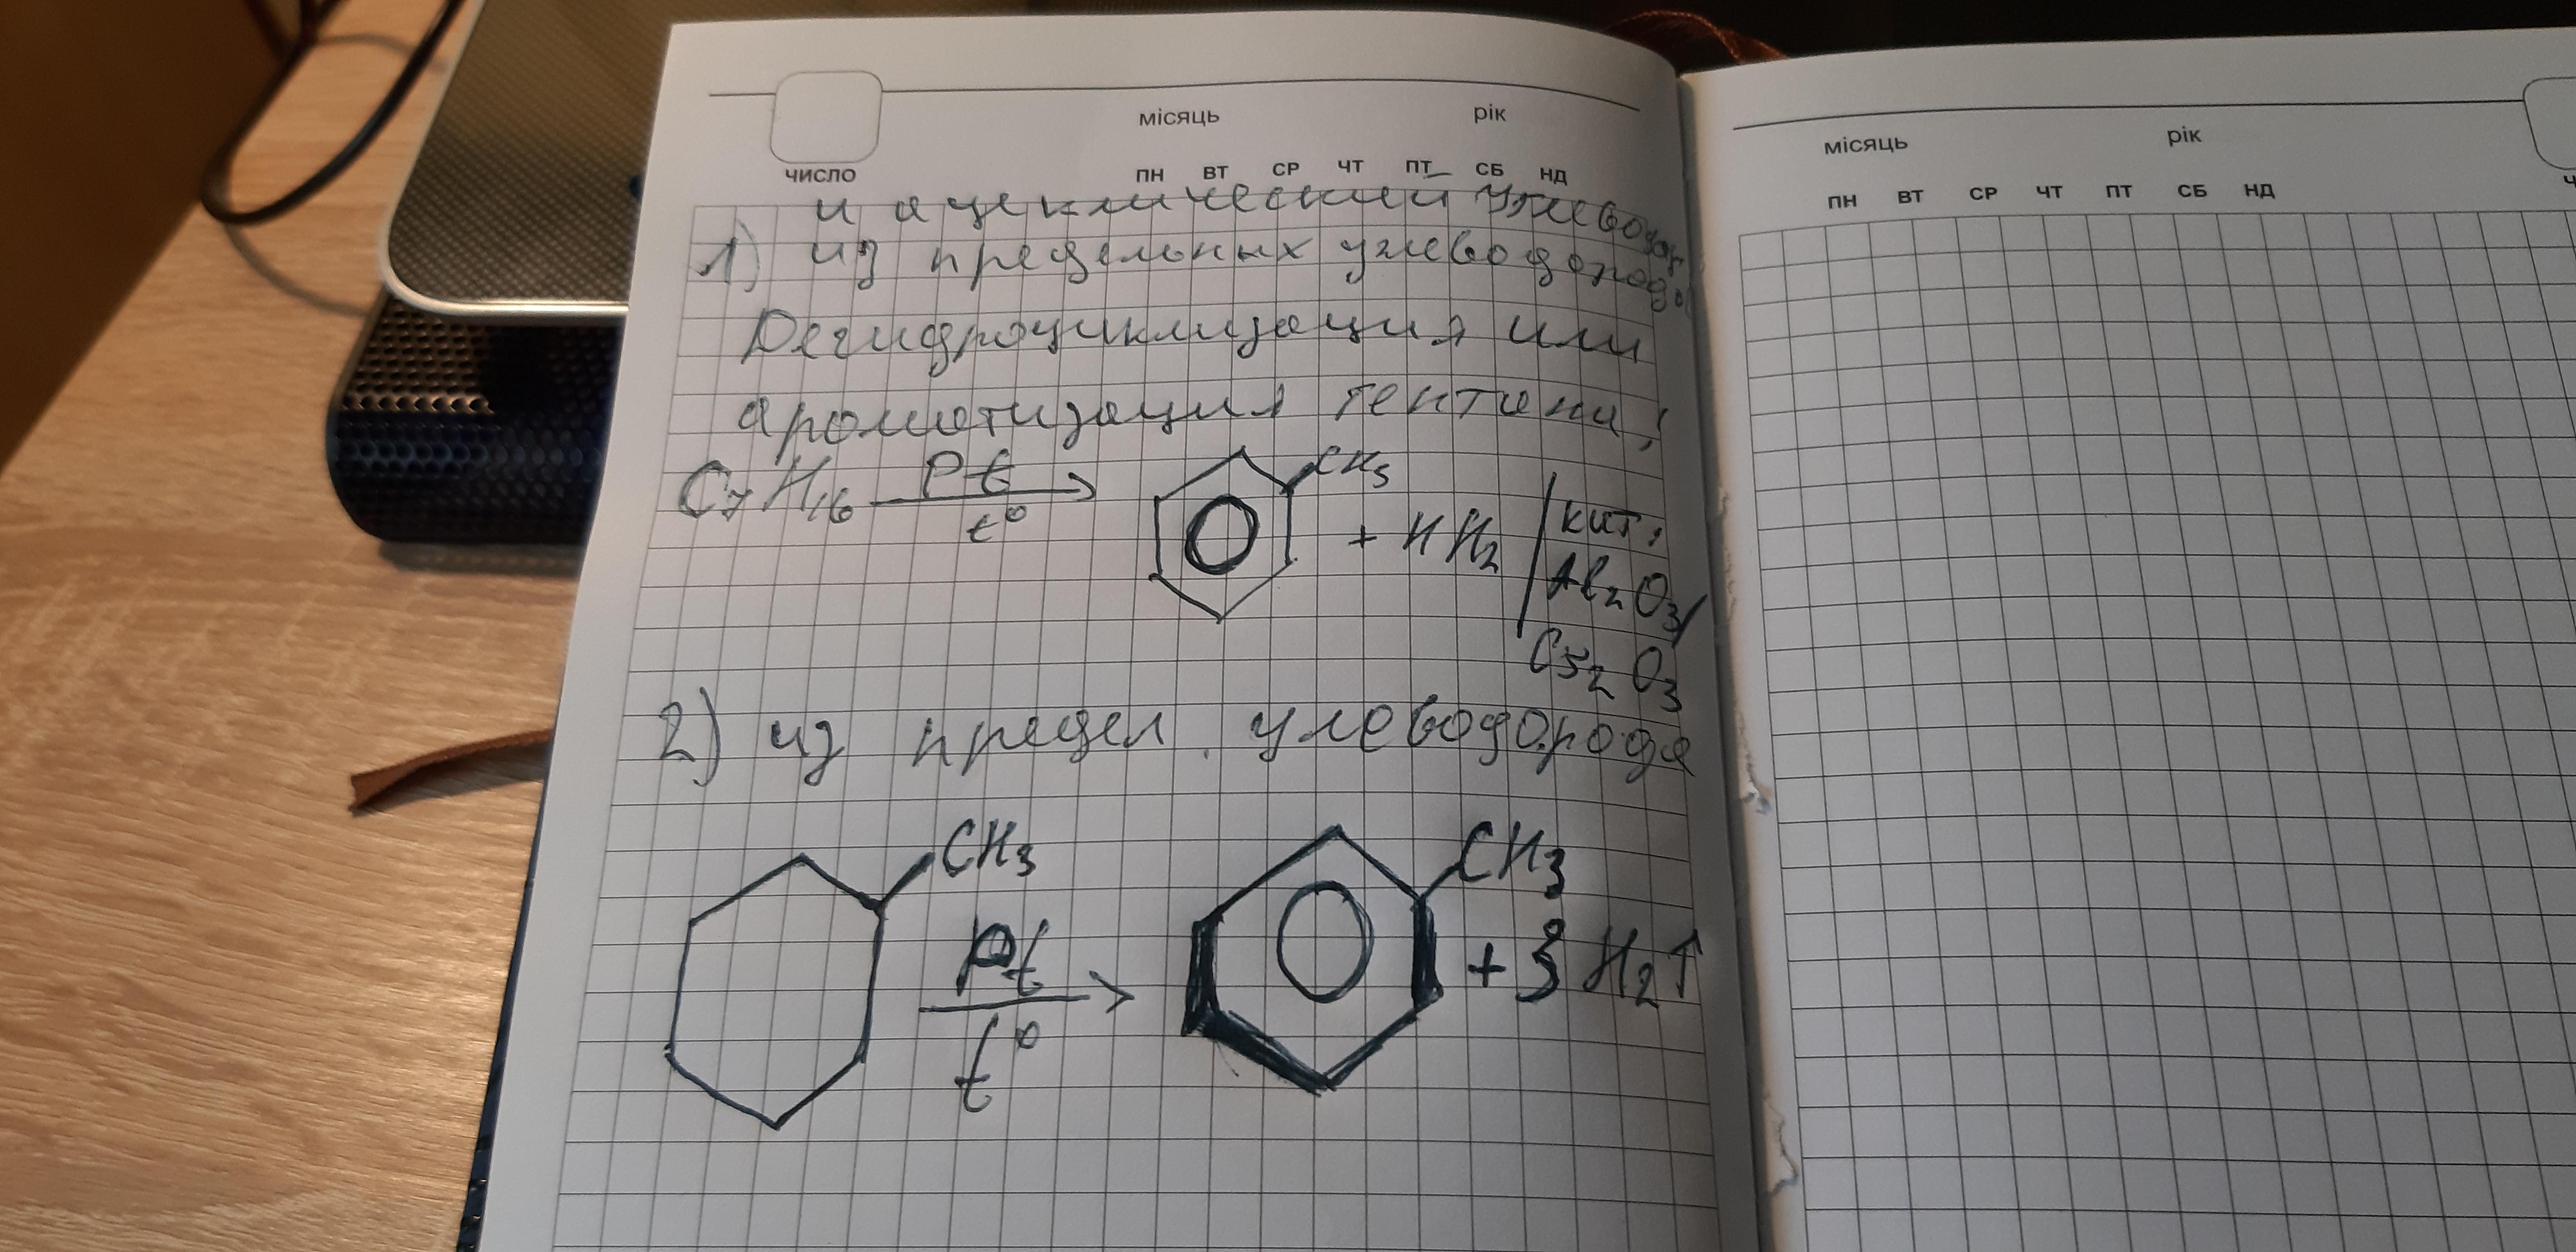 місяць рік
число ПН ВТ СР ЧТ ПТ СБ НД
и ациклический углеводор
1) из предельных углеводорода
Дегидроциклизация или
ароматизация гептана:
C7H16 Pt t° CH3 + 4H2 кат:
Al2O3/
Cr2O3
2) из предел. углеводорода
CH3 Pt t° CH3 + 3 H2↑
місяць рік
ПН ВТ СР ЧТ ПТ СБ НД
Ч